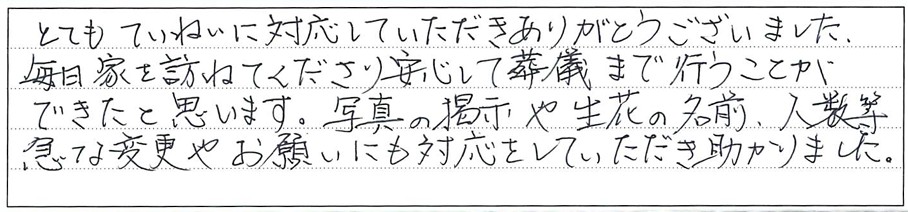 とてもていねいに対応していただきありがとうございました、
毎日家を訪ねてくださり安心して葬儀まで行うことが
できたと思います。写真の掲示や生花の名前、人数等
急な変更やお願いにも対応をしていただき助かりました。